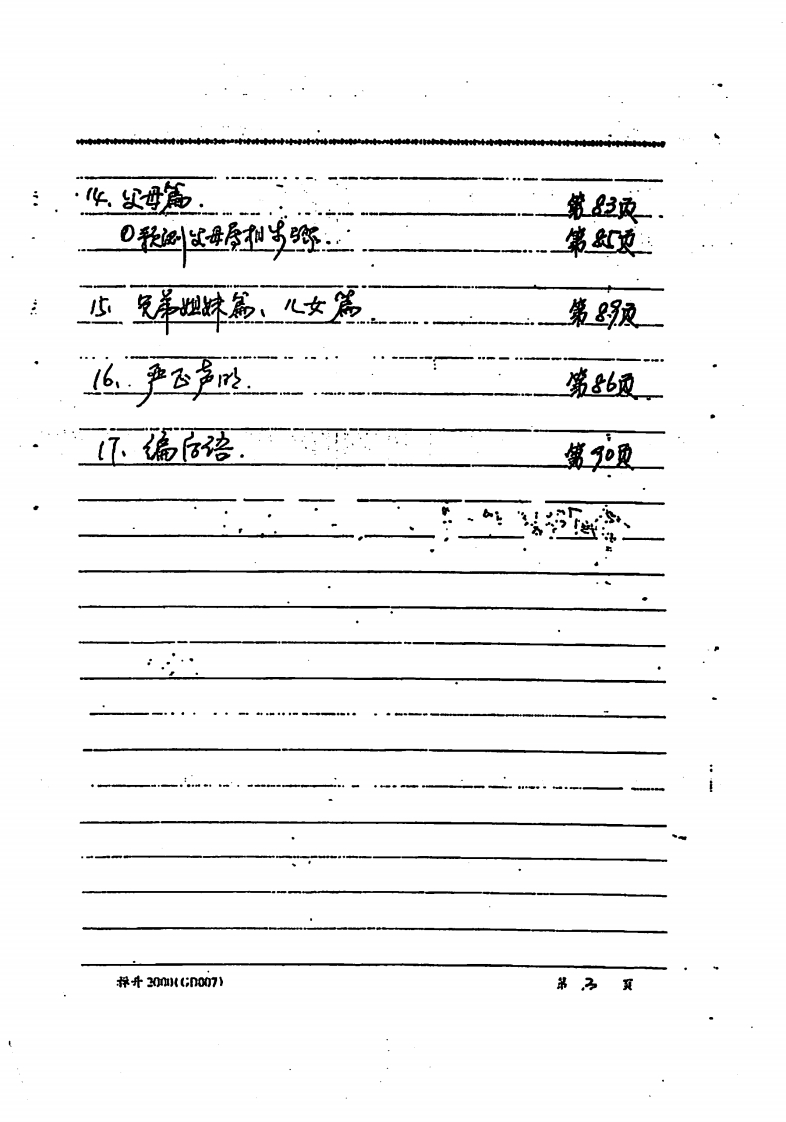 14. 父母篇. 第83页
①預测父母属相步骤. 第85页
15. 兄弟姐妹篇、儿女篇 第89页
16、严正声明. 第86页
17、编后语. 第90页
2000(GD007) 第 3 页